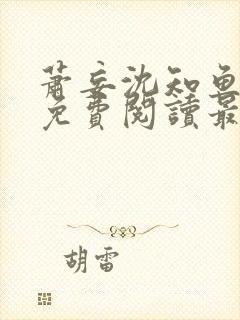 蕭妄沈知魚
免費閱讀最
胡雷